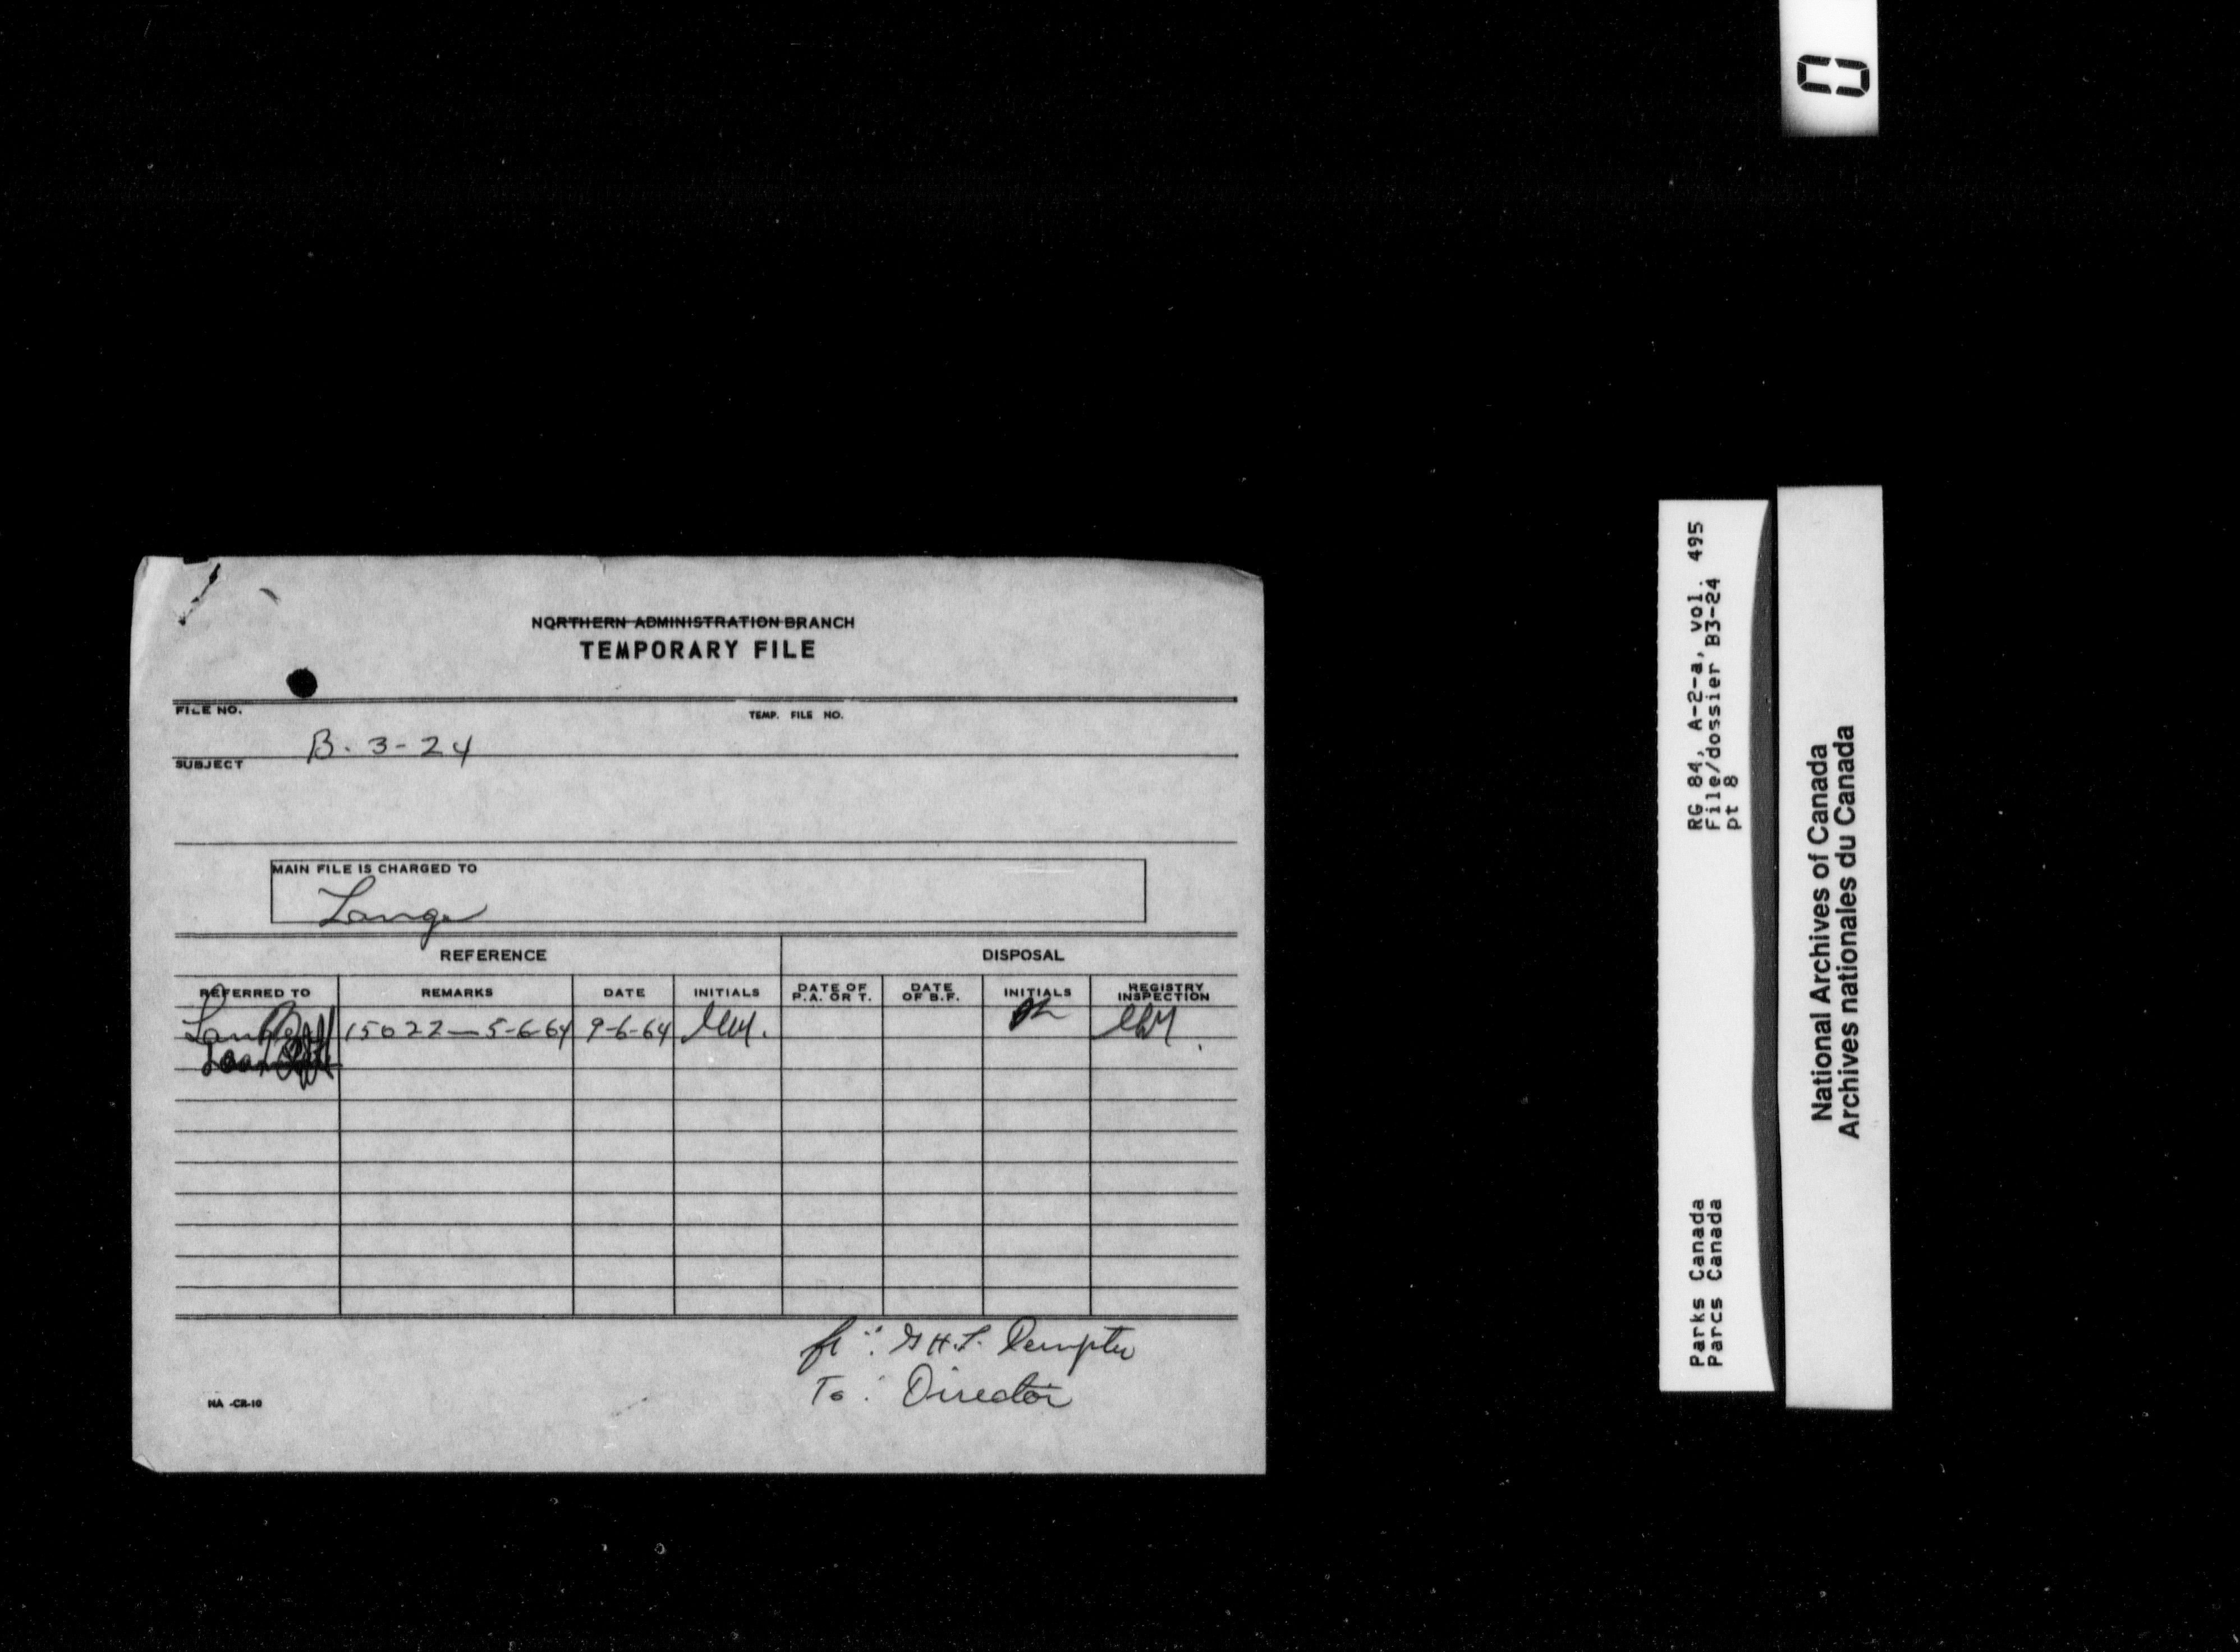 NORTHERN ADMINISTRATION BRANCH
TEMPORARY FILE
FILE NO.
TEMP. FILE NO.
B. 3-24
SUBJECT
MAIN FILE IS CHARGED TO
Lange
REFERENCE
DISPOSAL
REFERRED TO
REMARKS
DATE
INITIALS
DATE OF P.A. OR T.
DATE OF B.F.
INITIALS
REGISTRY INSPECTION
15022—5-6-64 9-6-64
fr: G H.L. Dempster
To: Director
NA -CR-10
RG 84, A-2-a, vol. 495
File/dossier B3-24
pt 8
Parks Canada
Parcs Canada
National Archives of Canada
Archives nationales du Canada
0